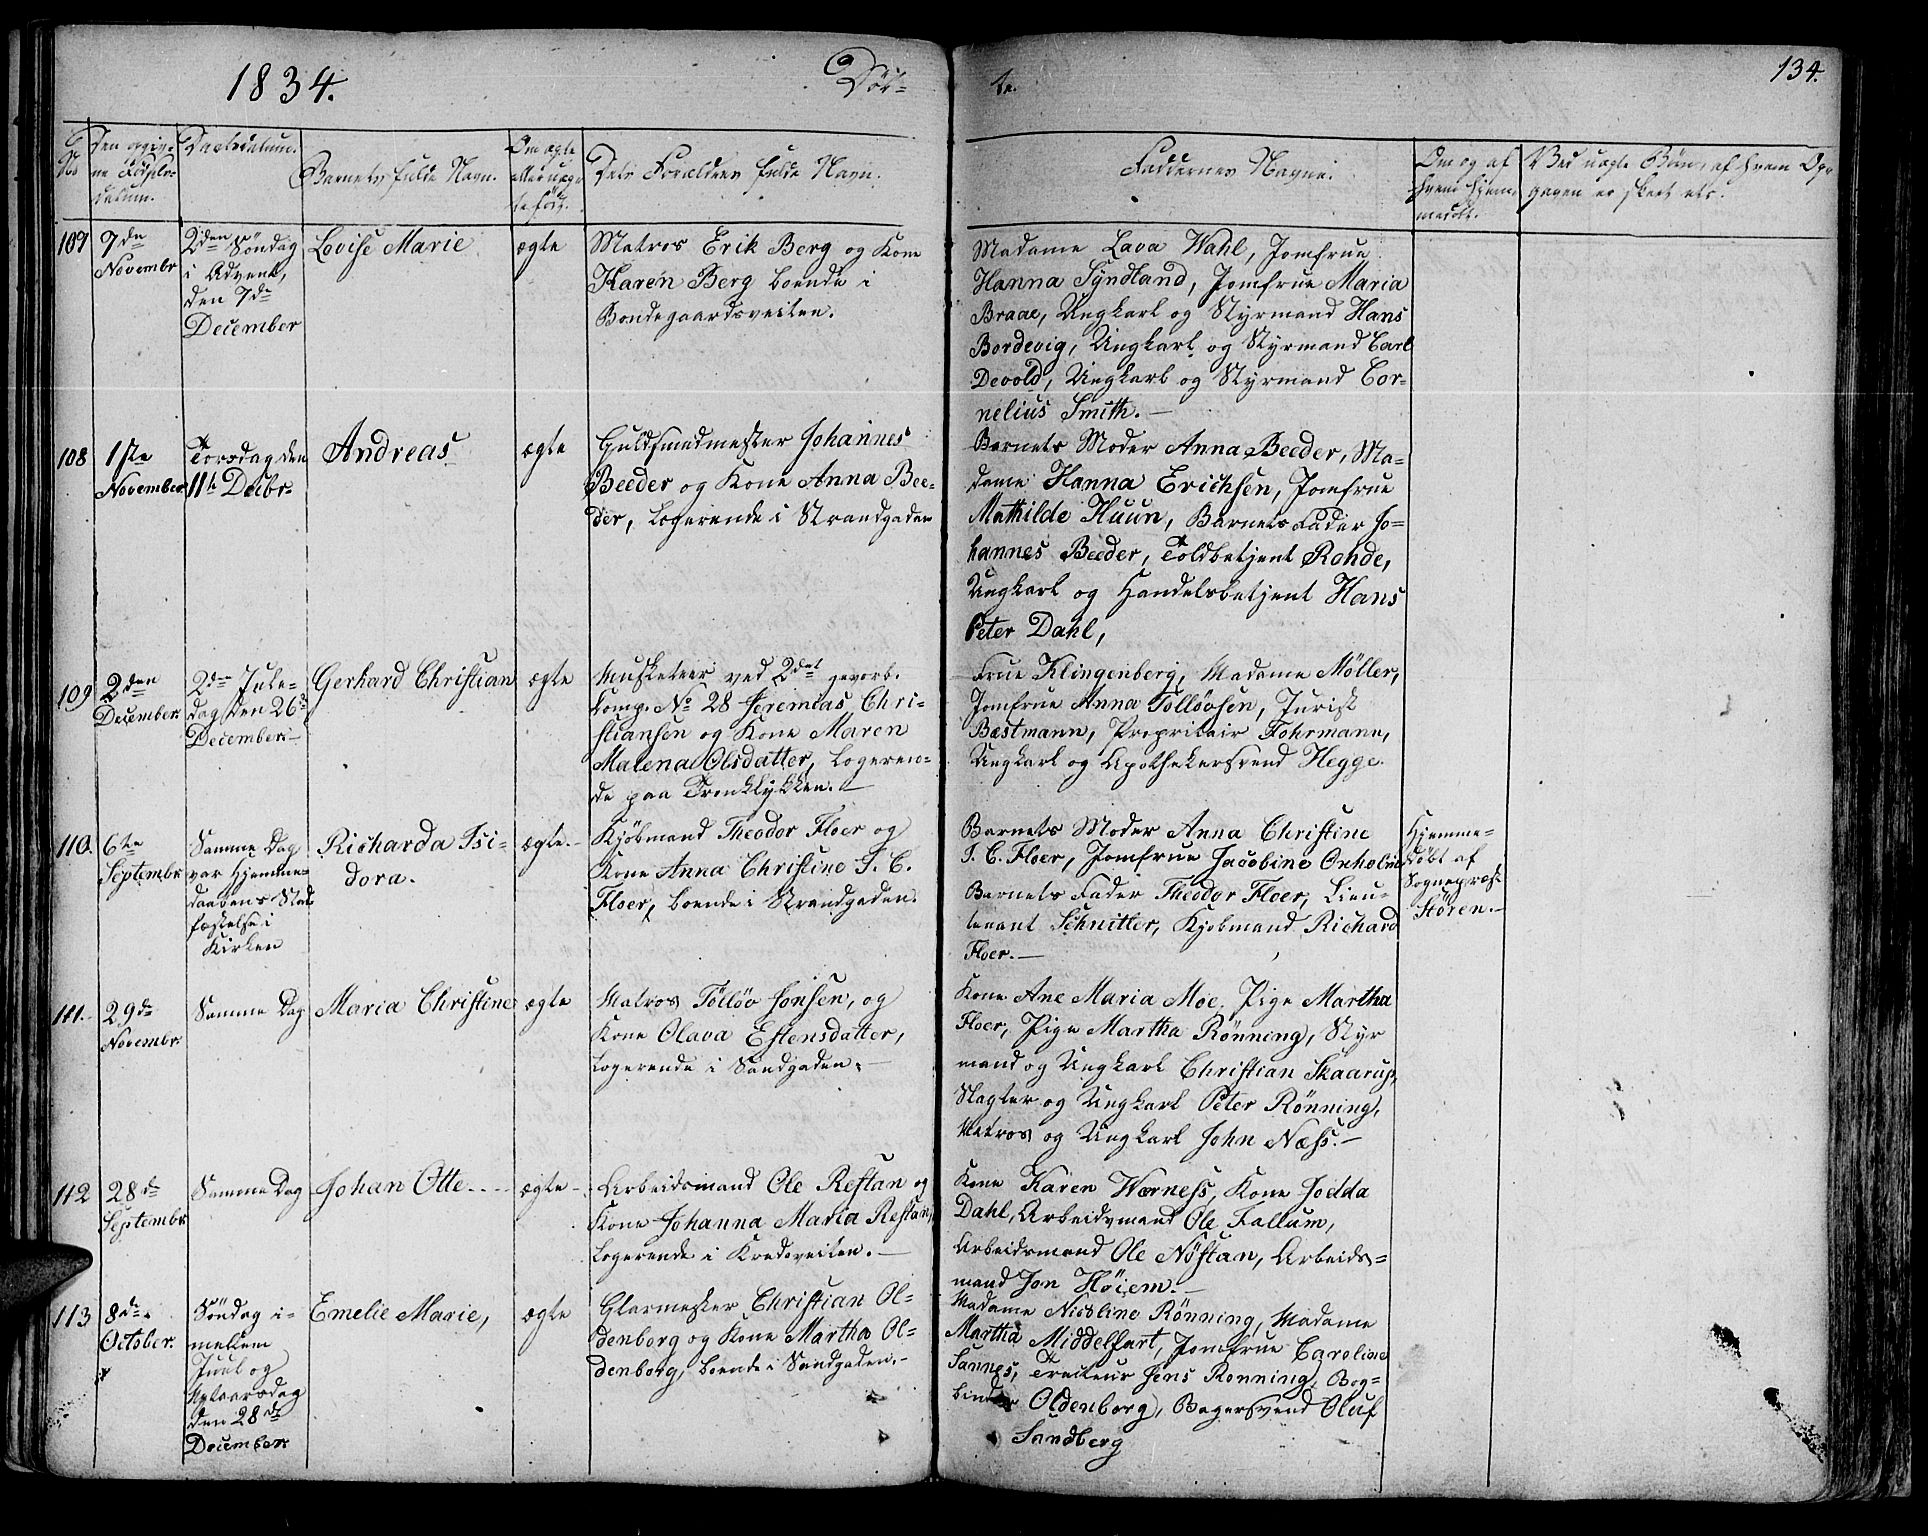 1834.
Døb=
te.
134.
No
Den opgiv=
ne Fødsels=
datum.
Daabsdatum.
Barnets fulde Navn.
Om ægte
eller uæg=
te født.
Dets Forældres fulde Navn.
Faddernes Navne.
Om og af
hvem hjem=
medøbt.
Ved uægte Børn, af hvem Op=
gaven er skeet etc.
107
7de
Novembr
2den Søndag
i Advent,
den 7de
December
Lovise Marie
ægte
Matros Erik Berg og Kone
Karen Berg boende i
Bondegaardsveiten.
Madame Lava Wahl, Jomfrue
Hanna Syndland, Jomfrue Maria
Braae, Ungkarl og Styrmand Hans
Bordevig, Ungkarl og Styrmand Carl
Devold, Ungkarl og Styrmand Cor=
nelius Smith.—
108
1ste
November
Torsdag den
11te Decbr
Andreas
ægte
Guldsmedmester Johannes
Beeder og Kone Anna Bee=
der, logerende i Strandgaden
Barnets Moder Anna Beeder, Ma=
dame Hanna Erichsen, Jomfrue
Mathilde Huun, Barnets Fader Jo=
hannes Beeder, Toldbetjent Rohde,
Ungkarl og Handelsbetjent Hans
Peter Dahl,
109
2den
December
2den Jule=
dag den 26de
December—
Gerhard Christian
ægte
Musketeer ved 2det gevorb.
Comp. No 28 Jeremias Chri=
stiansen og Kone Maren
Malena Olsdatter, logeren=
de paa Tronklykken.—
Frue Klingenberg, Madame Møller,
Jomfrue Anna Tolløvsen, Jurist
Bæstmann, Propritair Fohrmann,
Ungkarl og Apothekersvend Hegge.
110.
6te
Septembr
Samme Dag
var Hjemme=
daabens Stad
fæstelse i
Kirken
Richarda Isi=
dora.
ægte.—
Kjøbmand Theodor Floer og
Kone Anna Christine I. C.
Floer, boende i Strandgaden.
Barnets Moder Anna Christine
I. C. Floer, Jomfrue Jacobine Onholm
Barnets Fader Theodor Floer, Lieu=
tenant Schnitter, Kjøbmand Richard
Floer.—
Hjemme=
døbt af
Sognepræst
Støren.—
111.
29de
Novembr.
Samme Dag
Maria Christine
ægte
Matros Tölløv Jonsen, og
Kone Olava Estensdatter,
logerende i Sandgaden.—
Kone Ane Maria Moe. Pige Martha
Floer, Pige Martha Rønning, Styr
mand og Ungkarl Christian Skaarup,
Slagter og Ungkarl Peter Rønning,
Matros og Ungkarl John Næss.—
112
28de
Septembr
Samme Dag
Johan Otte
ægte—
Arbeidsmand Ole Restan og
Kone Johanna Maria Restan,
logerende i Kredsveiten.—
Kone Karen Wærness, Kone Jodda
Dahl, Arbeidsmand Ole Fallum,
Arbeidsmand Ole Nøstan, Arbeids=
mand Jon Høiem.—
113
8de
October.
Søndag i=
mellem
Juul og
Nytaarsdag
den 28de
December
Emelie Marie,
ægte
Glarmester Christian Ol=
denborg og Kone Martha Ol=
denborg, boende i Sandgaden.—
Madame Nicoline Rønning, Madame
Martha Middelfart, Jomfrue Caroline
Sannes, Tracteur Jens Rønning, Bog=
binder Oldenborg, Bagersvend Oluf
Sandberg